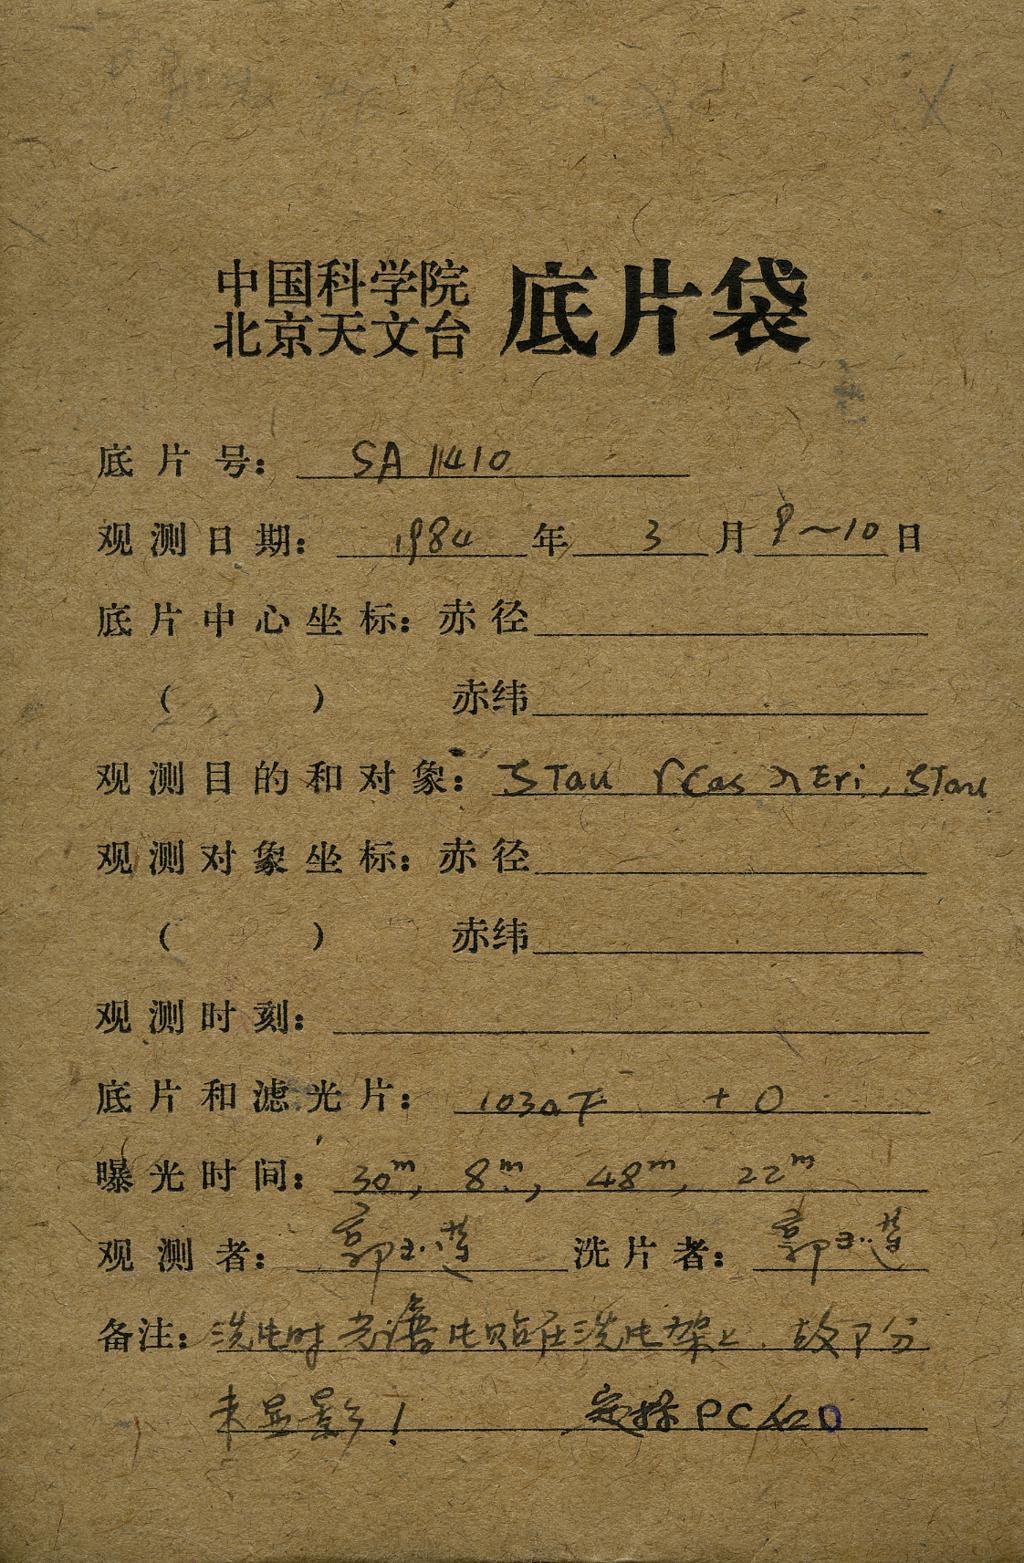 中国科学院
北京天文台 底片袋
底片号: SA 11410
观测日期: 1984 年 3 月 9~10 日
底片中心坐标: 赤径
( ) 赤纬
观测目的和对象: ζTau γCas λEri, ζTau
观测对象坐标: 赤径
( ) 赤纬
观测时刻:
底片和滤光片: 103aF + O
曝光时间: 30m, 8m, 48m, 22m
观测者: 郭玉莲 洗片者: 郭玉莲
备注: 洗片时光谱片贴在洗片架上, 故部分
未显影! 定标 PC